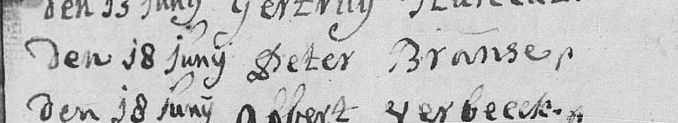 den 15 Junÿ Gertruÿ
Den 18 Junÿ Peter Branse,
Den 18 Junÿ Abbert verbeeck.